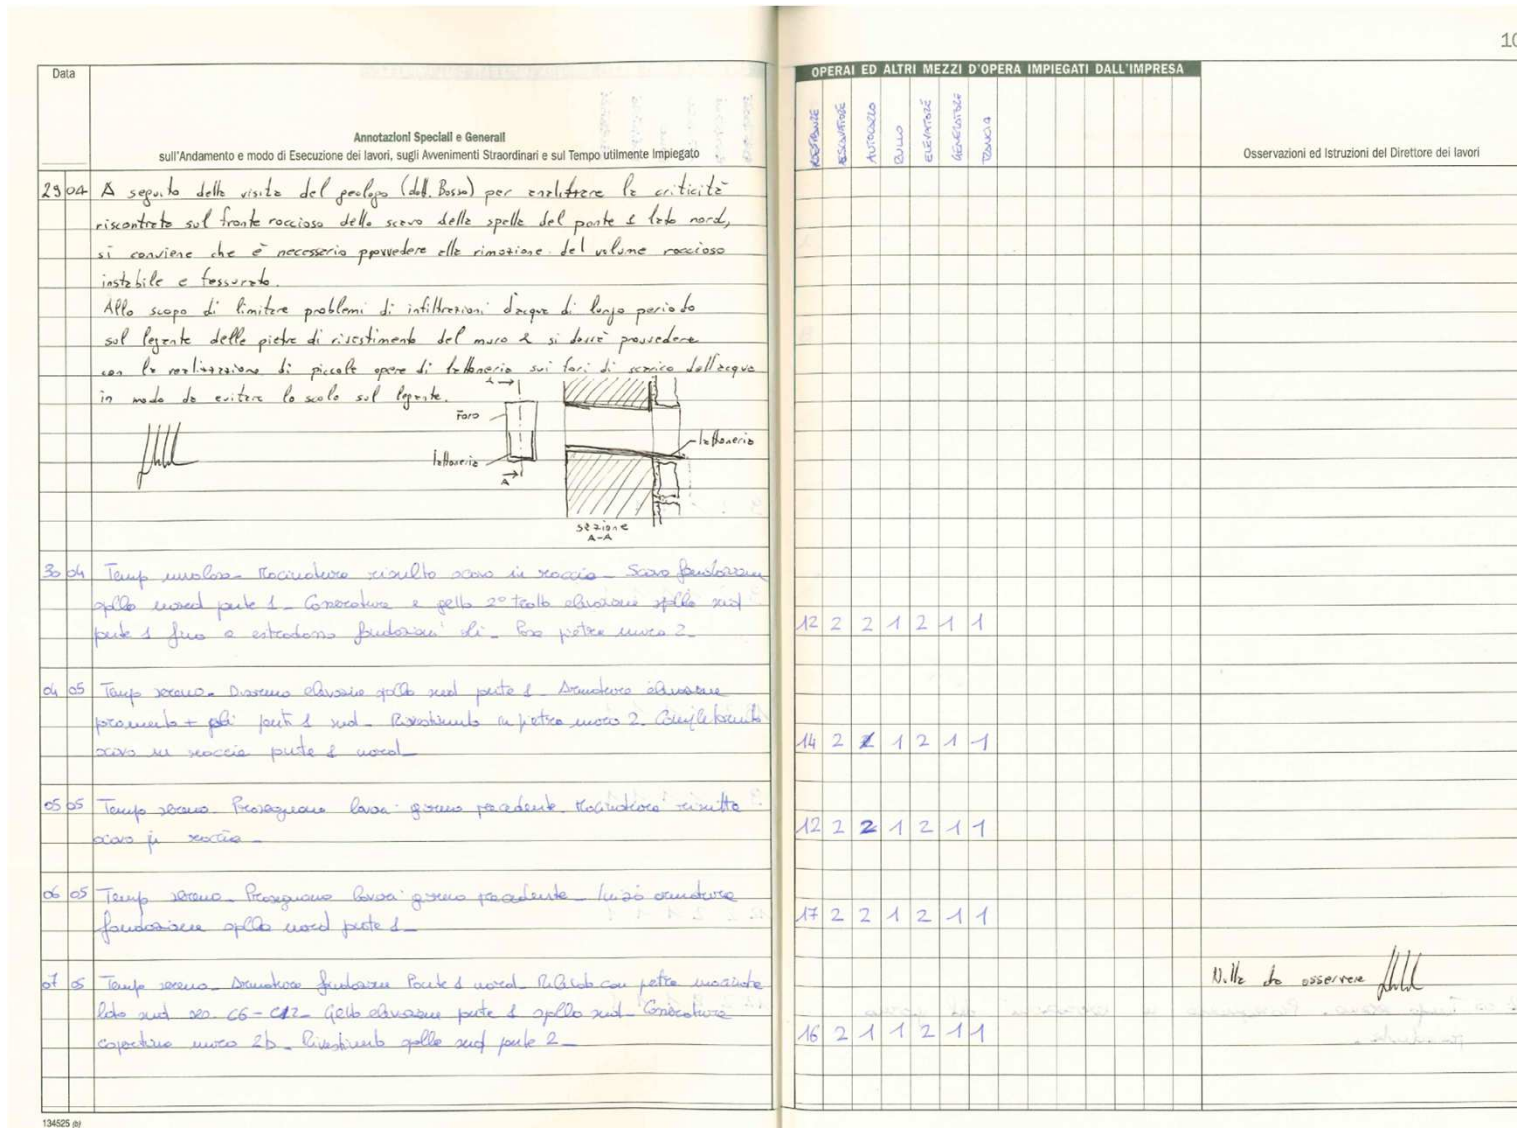 10
Data
Annotazioni Speciali e Generali
sull'Andamento e modo di Esecuzione dei lavori, sugli Avvenimenti Straordinari e sul Tempo utilmente Impiegato
OPERAI ED ALTRI MEZZI D'OPERA IMPIEGATI DALL'IMPRESA
ESCAVATORE
AUTOCARRO
RULLO
ELEVATORE
GENERATORE
Osservazioni ed Istruzioni del Direttore dei lavori
29 04 A seguito della visita del geologo (dott. Bosso) per analizzare la criticità
riscontrata sul fronte roccioso dello scavo della spalla del ponte 1 lato nord,
si conviene che è necessario provvedere alla rimozione del volume roccioso
instabile e fessurato.
Allo scopo di limitare problemi di infiltrazioni d'acqua di lungo periodo
sul legante delle pietre di rivestimento del muro 2 si dovrà provvedere
con la realizzazione di piccole opere di lattoneria sui fori di scarico dell'acqua
in modo da evitare lo scolo sul legante.
A
Foro
lattoneria
lattoneria
A
sezione
A-A
30 04 Tempo nuvoloso - Macinatura risulta scavo in roccia - Scavo fondazione
spalla nord ponte 1 - Casseratura e getto 2° tratto elevazione spalla sud
ponte 1 fino a estradosso fondazioni - Posa pietre muro 2 -
12 2 2 1 2 1 1
04 05 Tempo sereno - Disarmo elevazione spalla sud ponte 1 - Armatura elevazione
ponte 1 sud - Rivestimento in pietra muro 2. Completamento
scavo in roccia ponte 1 nord -
14 2 2 1 2 1 1
05 05 Tempo sereno - Proseguono lavori giorno precedente - Macinatura risulta
scavo in roccia -
12 2 2 1 2 1 1
06 05 Tempo sereno - Proseguono lavori giorno precedente - Inizio armatura
fondazione spalla nord ponte 1 -
17 2 2 1 2 1 1
07 05 Tempo sereno - Armatura fondazione Ponte 1 nord - con pietra
lato sud sez. C6 - C12 - Getto elevazione ponte 1 spalla sud - Casseratura
muro 2b - Rivestimento spalla sud ponte 2 -
16 2 1 1 2 1 1
Nulla da osservare
134525 (b)